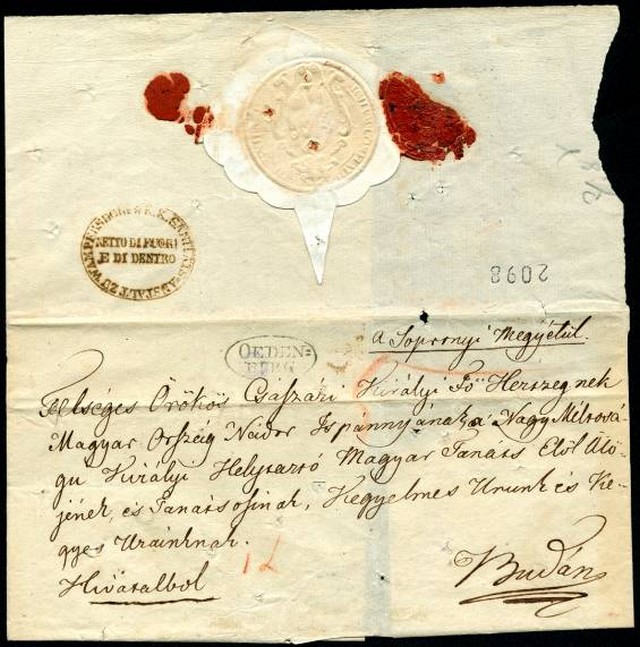 WAMPERSDORF K.K. SANITÆTS ANSTALT ZU
NETTO DI FUORI
E DI DENTRO
2098
OEDEN=
BERG
a Sopronyi Megyétűl.
Felséges Örökös Császári Királyi Fő Herczegnek
Magyar Ország Nádor Ispánnyának, a' Nagy Méltósá-
gu Királyi Helytartó Magyar Tanáts Elől Ülő-
jének, és Tanátsosinak, Kegyelmes Urunk és Ke-
gyes Urainknak.
Hivatalból
Budán